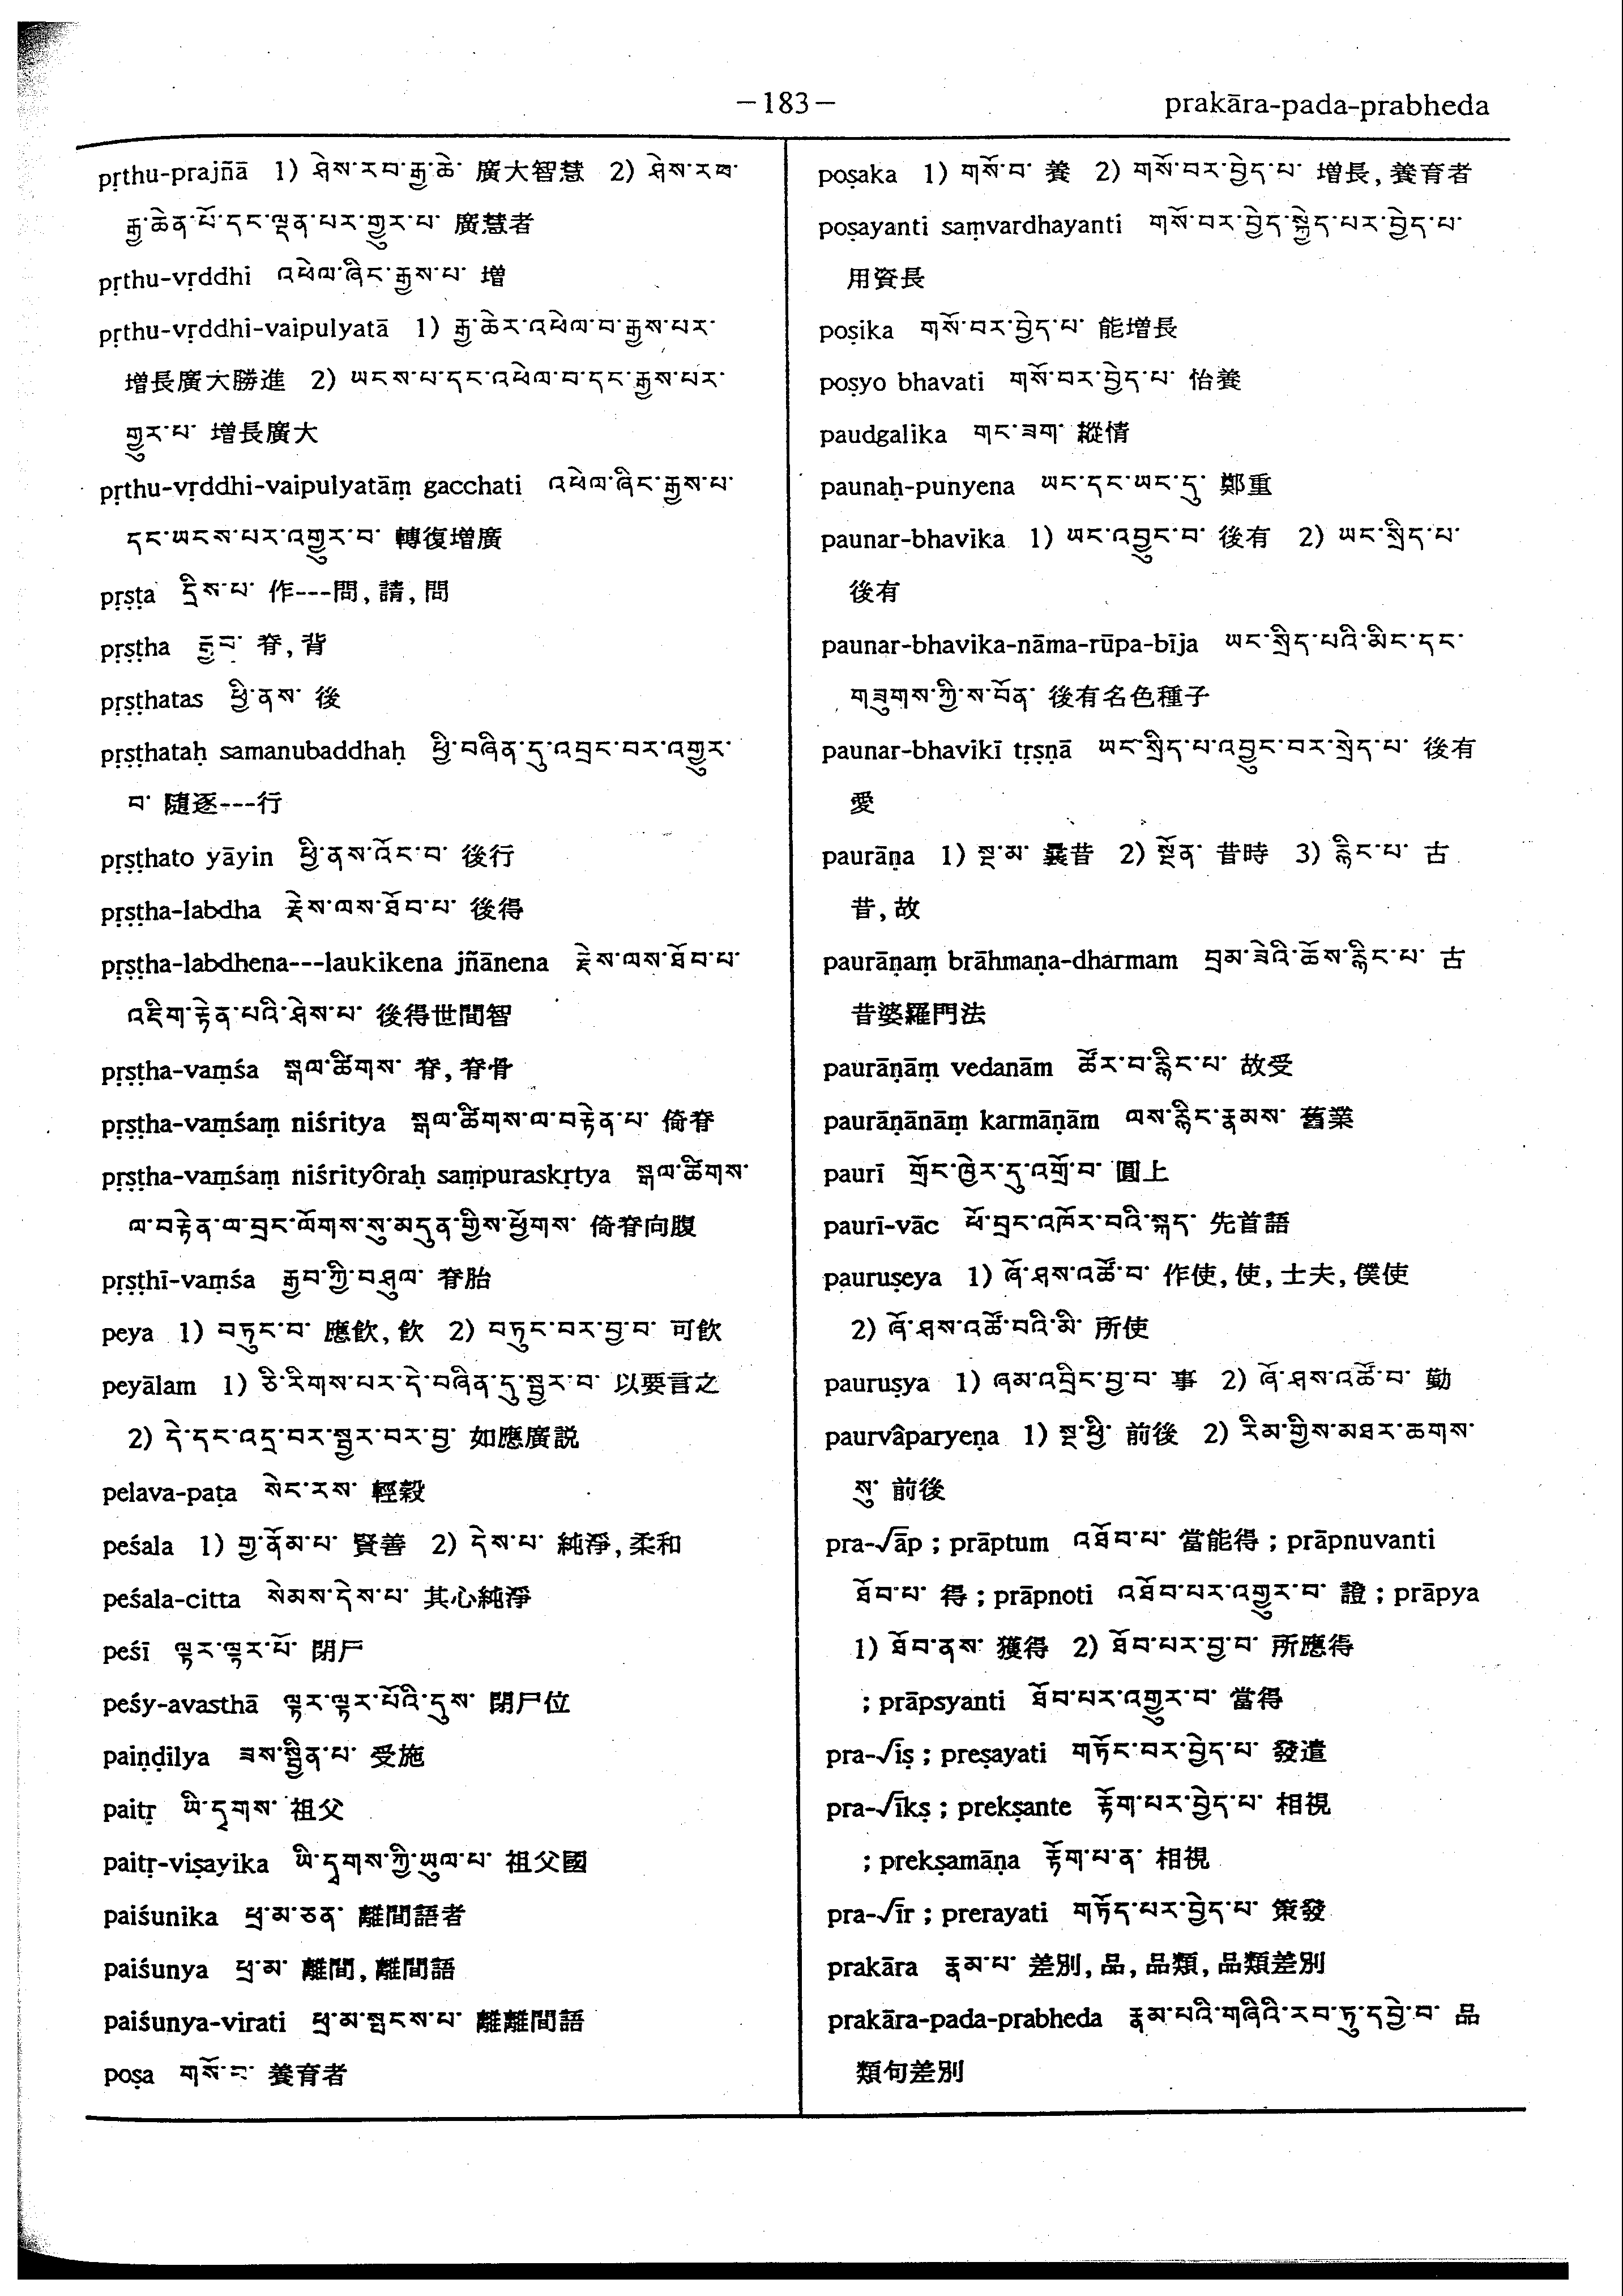 —183—
prakāra-pada-prabheda
pṛthu-prajñā 1) ཤེས་རབ་རྒྱ་ཆེ་ 廣大智慧 2) ཤེས་རབ་
རྒྱ་ཆེན་པོ་དང་ལྡན་པར་གྱུར་པ་ 廣慧者
pṛthu-vṛddhi འཕེལ་ཞིང་རྒྱས་པ་ 增
pṛthu-vṛddhi-vaipulyatā 1) རྒྱ་ཆེར་འཕེལ་བ་རྒྱས་པར་
增長廣大勝進 2) ཡངས་པ་དང་འཕེལ་བ་དང་རྒྱས་པར་
གྱུར་པ་ 增長廣大
pṛthu-vṛddhi-vaipulyatāṃ gacchati འཕེལ་ཞིང་རྒྱས་པ་
དང་ཡངས་པར་འགྱུར་བ་ 轉復增廣
pṛṣṭa དྲིས་པ་ 作---問, 請, 問
pṛṣṭha རྒྱབ་ 脊, 背
pṛṣṭhatas ཕྱི་ནས་ 後
pṛṣṭhataḥ samanubaddhaḥ ཕྱི་བཞིན་དུ་འབྲང་བར་འགྱུར་
བ་ 隨逐---行
pṛṣṭhato yāyin ཕྱི་ནས་འོང་བ་ 後行
pṛṣṭha-labdha རྗེས་ལས་ཐོབ་པ་ 後得
pṛṣṭha-labdhena---laukikena jñānena རྗེས་ལས་ཐོབ་པ་
འཇིག་རྟེན་པའི་ཤེས་པ་ 後得世間智
pṛṣṭha-vaṃśa སྒལ་ཚིགས་ 脊, 脊骨
pṛṣṭha-vaṃśaṃ niśritya སྒལ་ཚིགས་ལ་བརྟེན་པ་ 倚脊
pṛṣṭha-vaṃśaṃ niśrityôraḥ saṃpuraskṛtya སྒལ་ཚིགས་
ལ་བརྟེན་ལ་བྲང་ལོགས་སུ་མདུན་གྱིས་ཕྱོགས་ 倚脊向腹
pṛṣṭhī-vaṃśa རྒྱབ་ཀྱི་བཤུལ་ 脊胎
peya 1) བཏུང་བ་ 應飲, 飲 2) བཏུང་བར་བྱ་བ་ 可飲
peyālam 1) ཅི་རིགས་པར་དེ་བཞིན་དུ་སྦྱར་བ་ 以要言之
2) དེ་དང་འདྲ་བར་སྦྱར་བར་བྱ་ 如應廣説
pelava-paṭa སེང་རས་ 輕縠
peśala 1) གྱ་ནོམ་པ་ 賢善 2) དེས་པ་ 純淨, 柔和
peśala-citta སེམས་དེས་པ་ 其心純淨
peśī ལྟར་ལྟར་པོ་ 閉尸
peśy-avasthā ལྟར་ལྟར་པོའི་དུས་ 閉尸位
paiṇḍilya ཟས་སྦྱིན་པ་ 受施
paitṛ ཡི་དྭགས་ 祖父
paitṛ-viṣayika ཡི་དྭགས་ཀྱི་ཡུལ་པ་ 祖父國
paiśunika ཕྲ་མ་ཅན་ 離間語者
paiśunya ཕྲ་མ་ 離間, 離間語
paiśunya-virati ཕྲ་མ་སྤངས་པ་ 離離間語
poṣa གསོ་བ་ 養育者
poṣaka 1) གསོ་བ་ 養 2) གསོ་བར་བྱེད་པ་ 增長, 養育者
poṣayanti saṃvardhayanti གསོ་བར་བྱེད་སྐྱེད་པར་བྱེད་པ་
用資長
poṣika གསོ་བར་བྱེད་པ་ 能增長
poṣyo bhavati གསོ་བར་བྱེད་པ་ 怡養
paudgalika གང་ཟག་ 縱情
paunaḥ-punyena ཡང་དང་ཡང་དུ་ 鄭重
paunar-bhavika 1) ཡང་འབྱུང་བ་ 後有 2) ཡང་སྲིད་པ་
後有
paunar-bhavika-nāma-rūpa-bīja ཡང་སྲིད་པའི་མིང་དང་
གཟུགས་ཀྱི་ས་བོན་ 後有名色種子
paunar-bhavikī tṛṣṇā ཡང་སྲིད་པ་འབྱུང་བར་སྲེད་པ་ 後有
愛
paurāṇa 1) སྔ་མ་ 曩昔 2) སྔོན་ 昔時 3) རྙིང་པ་ 古
昔, 故
paurāṇaṃ brāhmaṇa-dharmam བྲམ་ཟེའི་ཆོས་རྙིང་པ་ 古
昔婆羅門法
paurāṇāṃ vedanām ཚོར་བ་རྙིང་པ་ 故受
paurāṇānāṃ karmāṇām ལས་རྙིང་རྣམས་ 舊業
paurī གྲོང་ཁྱེར་དུ་འགྲོ་བ་ 圓上
paurī-vāc ཕོ་བྲང་འཁོར་བའི་སྐད་ 先首語
pauruṣeya 1) ཞོ་ཤས་འཚོ་བ་ 作使, 使, 士夫, 僕使
2) ཞོ་ཤས་འཚོ་བའི་མི་ 所使
pauruṣya 1) ཞམ་འབྲིང་བྱ་བ་ 事 2) ཞོ་ཤས་འཚོ་བ་ 勤
paurvâparyeṇa 1) སྔ་ཕྱི་ 前後 2) རིམ་གྱིས་མཐར་ཆགས་
སུ་ 前後
pra-√āp ; prāptum འཐོབ་པ་ 當能得 ; prāpnuvanti
ཐོབ་པ་ 得 ; prāpnoti འཐོབ་པར་འགྱུར་བ་ 證 ; prāpya
1) ཐོབ་ནས་ 獲得 2) ཐོབ་པར་བྱ་བ་ 所應得
; prāpsyanti ཐོབ་པར་འགྱུར་བ་ 當得
pra-√iṣ ; preṣayati གཏོང་བར་བྱེད་པ་ 發遣
pra-√īkṣ ; prekṣante རྟོག་པར་བྱེད་པ་ 相視
; prekṣamāṇa རྟོག་པ་ན་ 相視
pra-√īr ; prerayati གཏོད་པར་བྱེད་པ་ 策發
prakāra རྣམ་པ་ 差別, 品, 品類, 品類差別
prakāra-pada-prabheda རྣམ་པའི་གཞིའི་རབ་ཏུ་དབྱེ་བ་ 品
類句差別